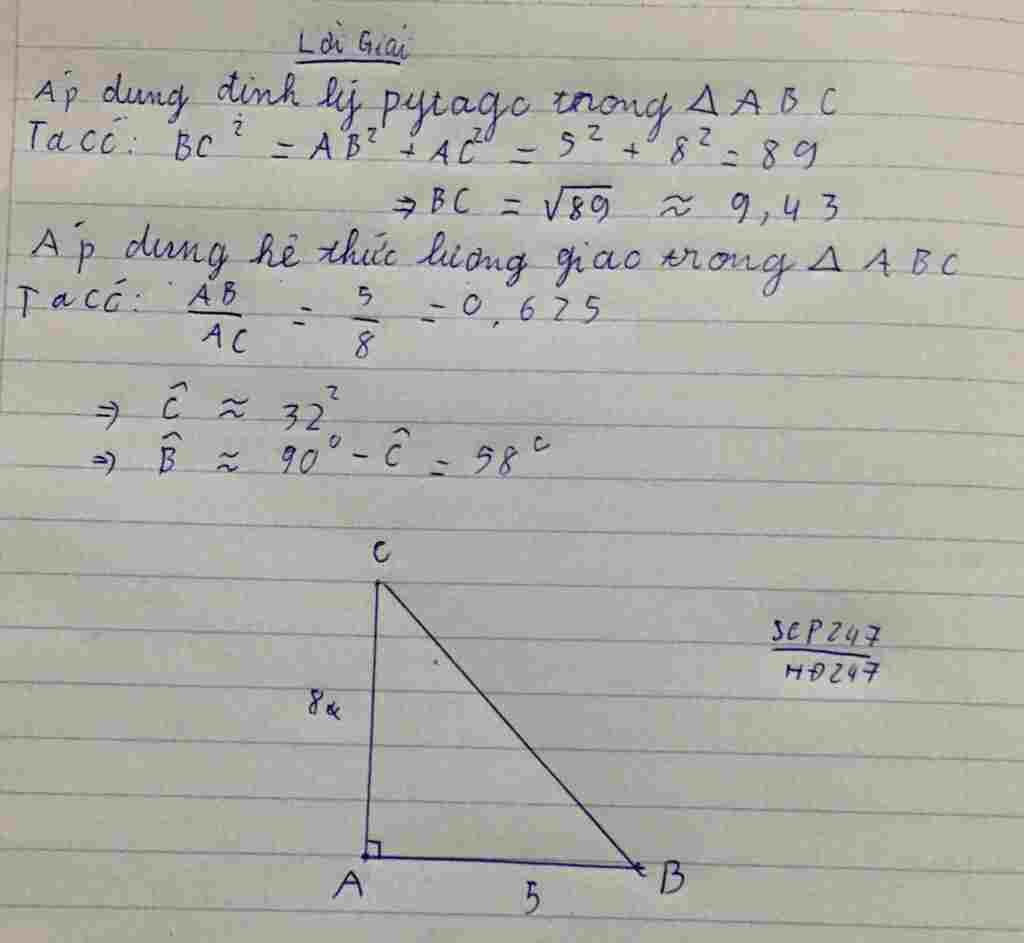 Lời Giải
Áp dung đinh lý pytago trong Δ A B C
Ta có: BC² = AB² + AC² = 5² + 8² = 89
⇒ BC = √89 ≈ 9,43
Áp dung hê thức lương giao trong Δ A B C
Ta có: AB/AC = 5/8 = 0,625
⇒ Ĉ ≈ 32²
⇒ B̂ ≈ 90° - Ĉ = 58°
C
SCP247
HD247
8
A
B
5